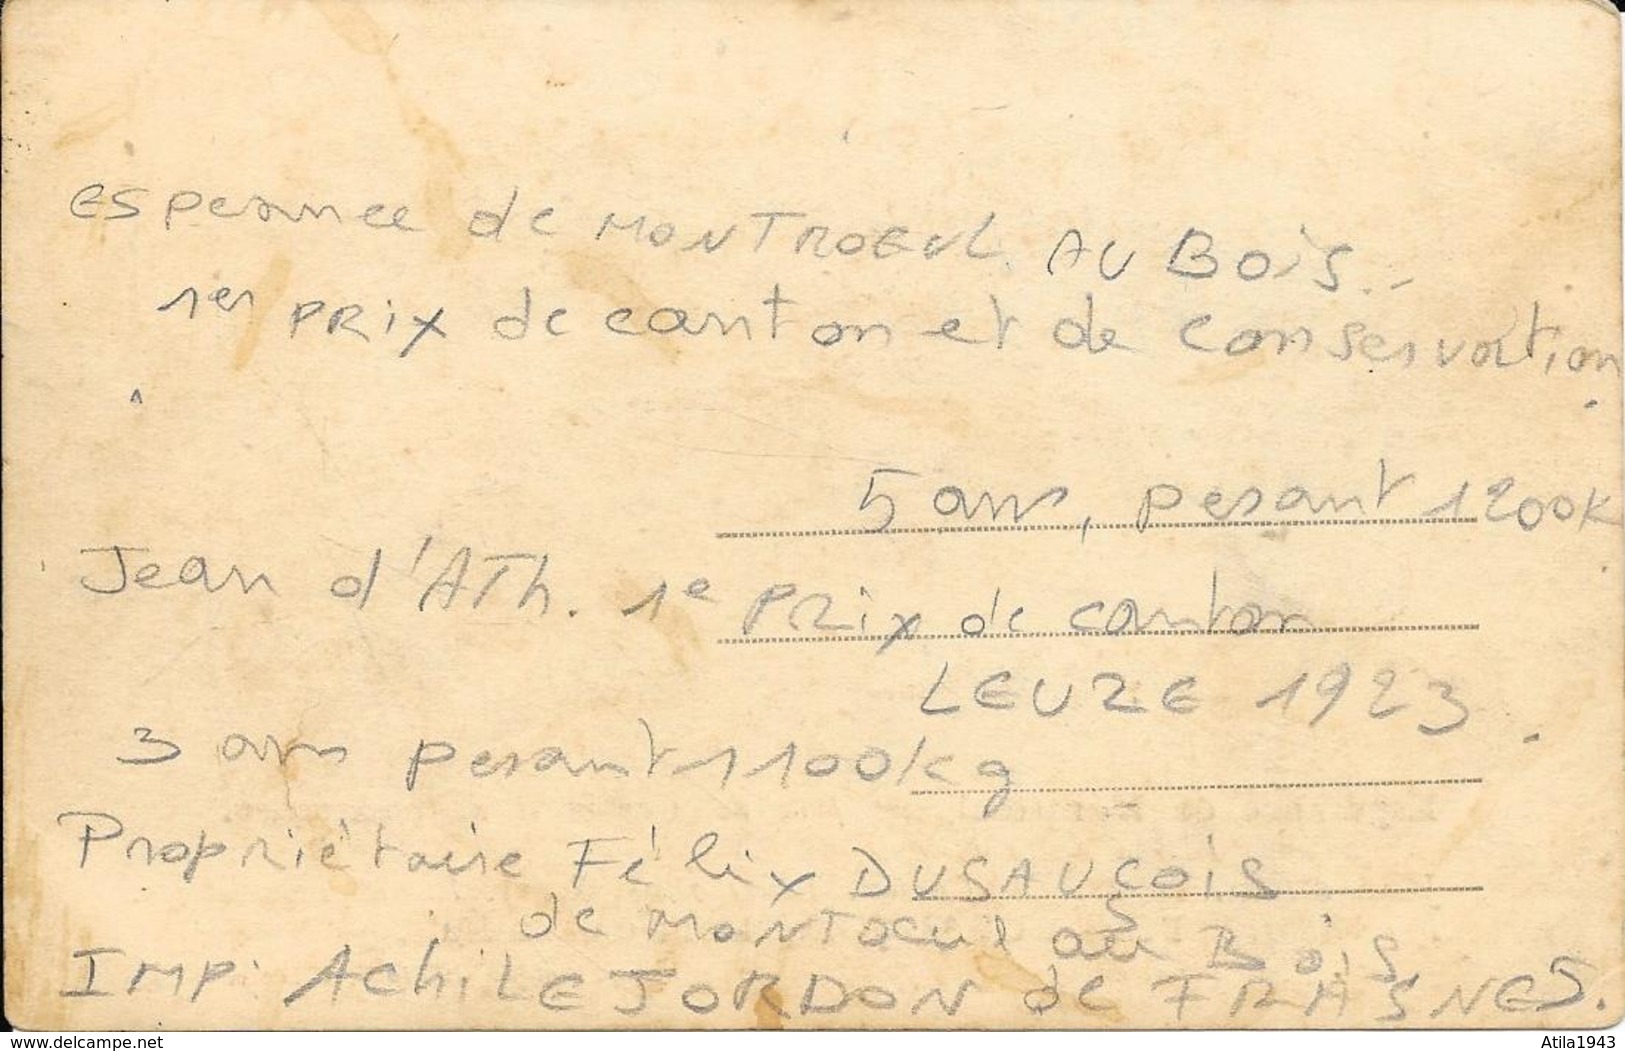 esperance de MONTROEUL AU BOIS.
1er PRIX de canton et de conservation
5 ans, pesant 1200K
Jean d'ATh. 1e PRIX de canton
LEUZE 1923.
3 ans pesant 1100kg
Propriétaire Félix DUSAUÇOIS
de MONTOEUL au BOIS
IMP: AChiLE JORDON de FRASNES.
www.delcampe.net
Atila1943